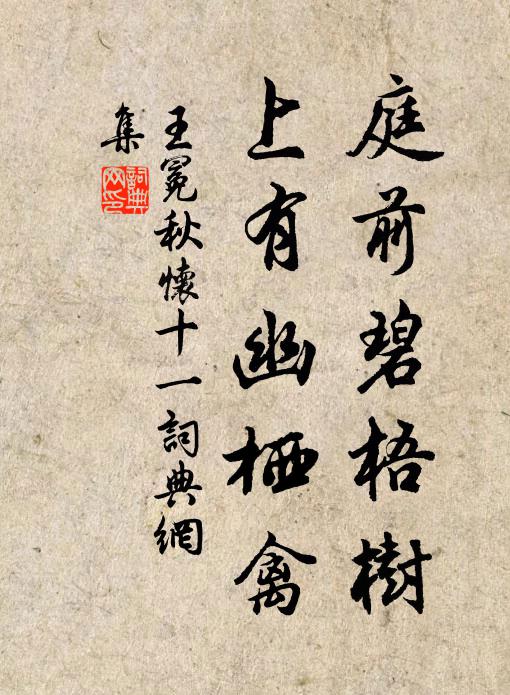 庭前碧梧樹
上有幽栖禽
王冕秋懷十一詞典網
集
詞典
网印